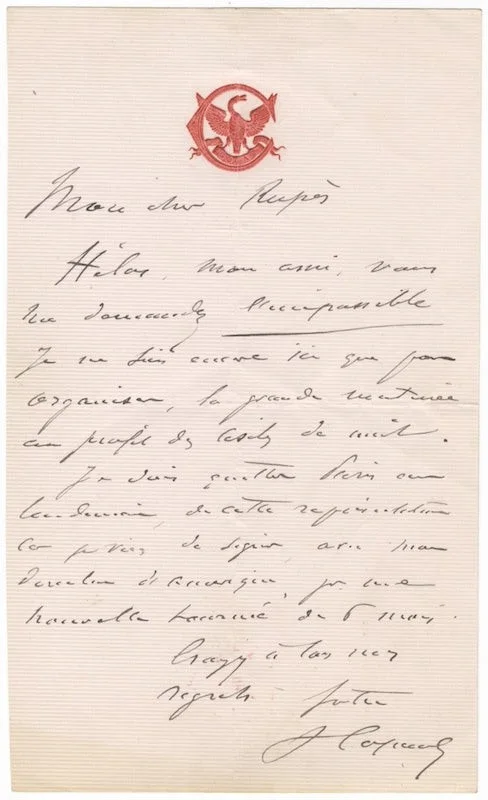 Mon cher Rupès
Hélas, mon ami, vous
me demandez l'impossible
Je ne suis encore ici que pour
organiser, la grande matinée
au profit des asiles de nuit.
Je dois quitter Paris au
lendemain, de cette représentation
je viens de signer, avec mon
directeur d'Amérique, pr une
nouvelle tournée de 6 mois.
Croyez à tous mes
regrets Votre
Coquelin